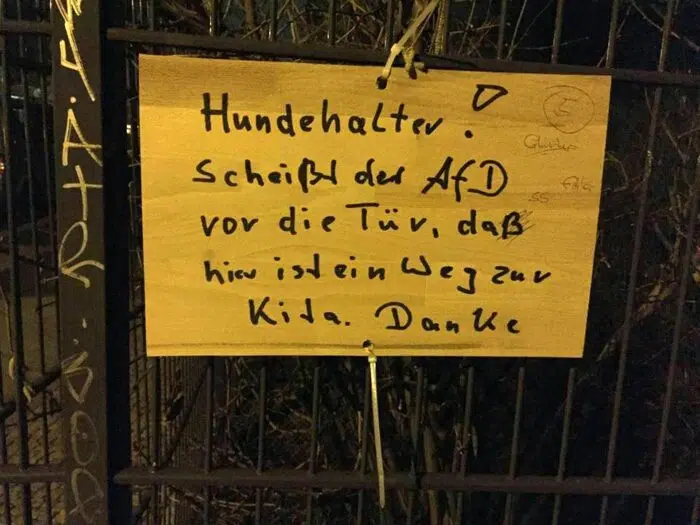 Hundehalter!
Scheißt der AfD
vor die Tür, daß
hier ist ein Weg zur
Kita. Danke
5